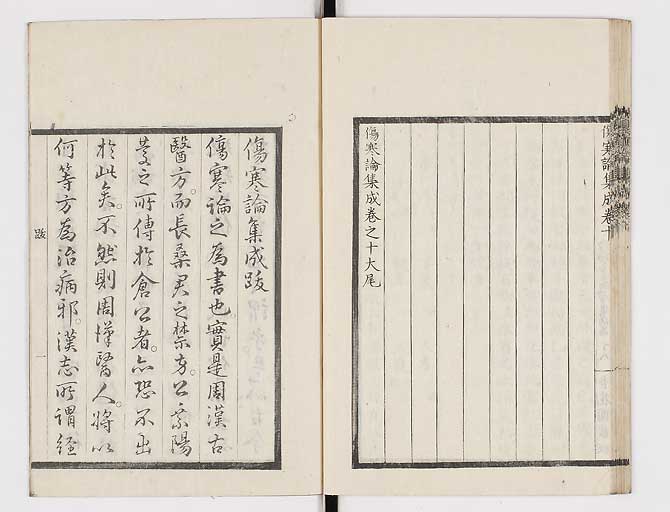 傷寒論集成卷十
傷寒論集成卷之十大尾
傷寒論集成跋
傷寒論之為書也實是周漢古
醫方。而長桑君之禁方。公乘陽
慶之所傳於倉公者。亦恐不出
於此矣。不然則周漢醫人。將以
何等方為治病邪。漢志所謂経
跋
一